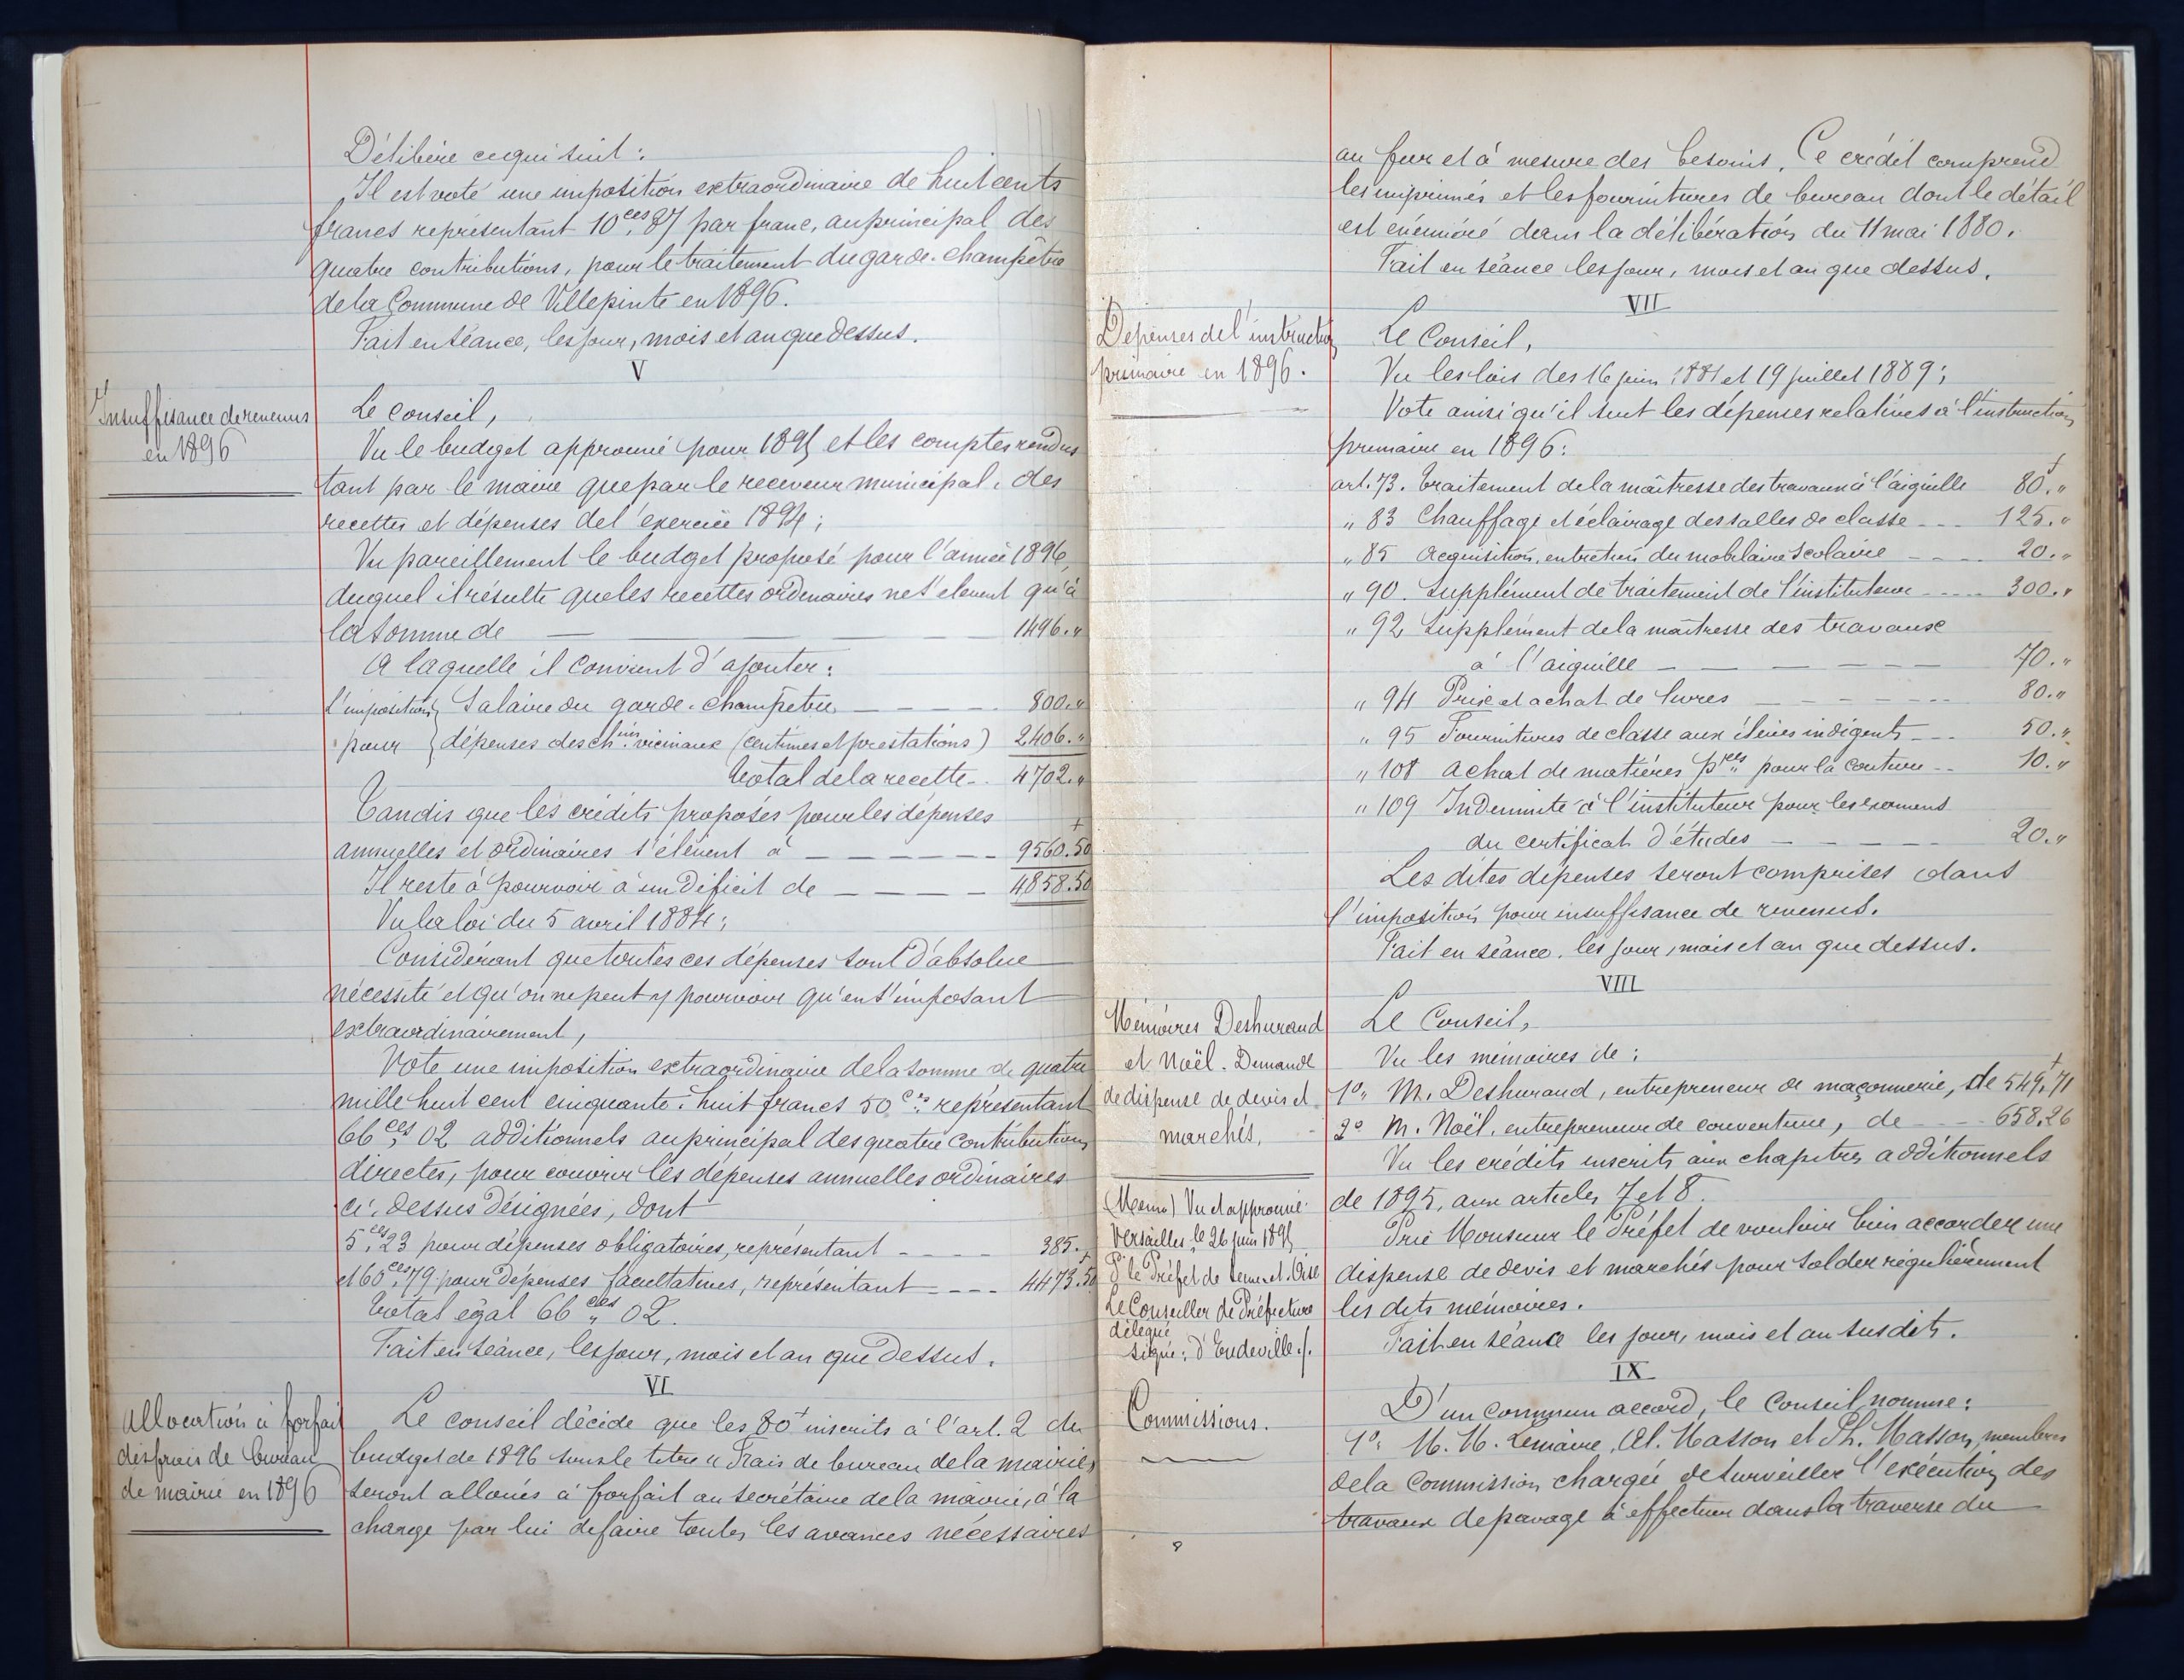 Délibère ce qui suit :
Il est voté une imposition extraordinaire de huit cents
francs représentant 10 ces, 87 par franc, au principal des
quatre contributions, pour le traitement du garde-champêtre
de la Commune de Villepinte en 1896.
Fait en séance, les jour, mois et an que dessus.
V
Insuffisance de revenus
en 1896
Le conseil,
Vu le budget approuvé pour 1895 et les comptes rendus
tant par le maire que par le receveur municipal, des
recettes et dépenses de l'exercice 1894 ;
Vu pareillement le budget proposé pour l'année 1896,
duquel il résulte que les recettes ordinaires ne s'élèvent qu'à
la somme de — — — — 1496. "
A laquelle il convient d'ajouter :
l'imposition { Salaire du garde-champêtre — — — — 800. "
pour { dépenses des ch ins vicinaux (centimes et prestations) 2406. "
Total de la recette -- 4702. "
Tandis que les crédits proposés pour les dépenses
annuelles et ordinaires s'élèvent à — — — — — — 9560 f. 50
Il reste à pourvoir à un déficit de — — — — 4858.50
Vu la loi du 5 avril 1884 ;
Considérant que toutes ces dépenses sont d'absolue
nécessité et qu'on ne peut y pourvoir qu'en s'imposant
extraordinairement,
Vote une imposition extraordinaire de la somme de quatre
mille huit cent cinquante-huit francs 50 ces représentant
66 ces, 02 additionnels au principal des quatre contributions
directes, pour couvrir les dépenses annuelles ordinaires
ci-dessus désignées, dont
5 ces, 23 pour dépenses obligatoires, représentant - - - - 385. "
et 60 ces, 79 pour dépenses facultatives, représentant - - - - 4473 f. 50
Total égal 66 ces, 02.
Fait en séance, les jour, mois et an que dessus.
VI
Allocation à forfait
des frais de bureau
de mairie en 1896
Le conseil décide que les 80 f inscrits à l'art. 2 du
budget de 1896 sous le titre " Frais de bureau de la mairie,
seront alloués à forfait au secrétaire de la mairie, à la
charge par lui de faire toutes les avances nécessaires
au fur et à mesure des besoins. Ce crédit comprend
les imprimés et les fournitures de bureau dont le détail
est énuméré dans la délibération du 11 mai 1880.
Fait en séance les jour, mois et an que dessus.
VII
Dépenses de l'instruction
primaire en 1896.
Le Conseil,
Vu les lois des 16 juin 1881 et 19 juillet 1889 ;
Vote ainsi qu'il suit les dépenses relatives à l'instruction
primaire en 1896 :
art. 73. Traitement de la maîtresse des travaux à l'aiguille 80 f. "
" 83 Chauffage et éclairage des salles de classe - - - 125. "
" 85 Acquisition, entretien du mobilaire scolaire - - - 20. "
" 90. Supplément de traitement de l'instituteur - - - - 300. "
" 92 Supplément de la maîtresse des travaux
à l'aiguille — — — — — 70. "
" 94 Prix et achat de livres — — — — — 80. "
" 95 Fournitures de classe aux élèves indigents - - - 50. "
" 108 Achat de matières p res pour la couture - - 10. "
" 109 Indemnité à l'instituteur pour les examens
du certificat d'études — — — — — 20. "
Les dites dépenses seront comprises dans
l'imposition pour insuffisance de revenus.
Fait en séance, les jour, mois et an que dessus.
VIII
Mémoires Deshurand
et Noël. Demande
de dispense de devis et
marchés.
Le Conseil,
Vu les mémoires de :
1°, M. Deshurand, entrepreneur de maçonnerie, de 549 f. 71
2° M. Noël, entrepreneur de couverture, de - - - 658.26
Vu les crédits inscrits aux chapitres additionnels
de 1895, aux articles 7 et 8.
Prie Monsieur le Préfet de vouloir bien accorder une
dispense de devis et marchés pour solder régulièrement
les dits mémoires.
Fait en séance les jour, mois et an susdits.
Vu et approuvé.
Versailles, le 26 juin 1895
P r le Préfet de Seine-et-Oise
Le Conseiller de Préfecture
délégué
signé : d'Endeville ./.
IX
Commissions.
D'un commun accord, le Conseil nomme :
1°, M. M. Lemaire, Al. Masson et Ph. Masson, membres
de la commission chargée de surveiller l'exécution des
travaux de pavage à effectuer dans la traverse du